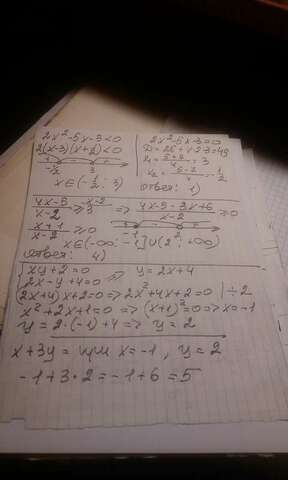 2x²-5x-3<0
2(x-3)(x+½)<0
-½ 3
x∈(-½; 3)
2x²-5x-3=0
D=25+4·2·3=49
x₁=(5+7)/4=3
x₂=(5-7)/4=-1/2
ответ: 1)
(4x-5)/(x-2)≥3 => (4x-5-3x+6)/(x-2)≥0
(x+1)/(x-2)≥0
-1 2
x∈(-∞; -1]U(2; +∞)
ответ: 4)
{xy+2=0
2x-y+4=0 => y=2x+4
(2x+4)x+2=0 => 2x²+4x+2=0 | ÷2
x²+2x+1=0 => (x+1)²=0 => x=-1
y=2·(-1)+4 => y=2
x+3y= при x=-1, y=2
-1+3·2=-1+6=5